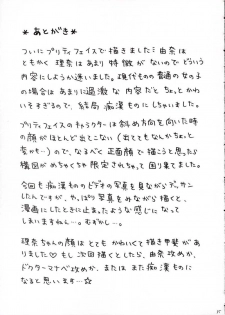 * あとがき *
ついにプリティフェイスで描きました…由奈は
ともかく 理奈は あまり 特徴 がないので どういう
内容にしようか迷いました。現代ものの普通の女の子
の場合は あまりに過激 な 内容だと ちょっとかわ
いそすぎるので、結局 痴漢 ものにしちゃいました。
プリティフェイスのキャラクターは斜め方向を向いた時
の顔がほとんど出てこない (出てても なんか ちょっと
変かも…) ので、なるべく 正面顔で描こうと思ったら
構図が めちゃくちゃ 限定されちゃって困り果てました。
今回も痴漢ものビデオの写真を見ながらデッサン
したんですが、やっぱり 写真をみながら描くと、
漫画にしたときに止まったような感じになって
しまいますねん…。すみません…。
理奈ちゃんの顔は とても かわいくて描き甲斐があり
ました♡ もし次回描くとしたら、由奈攻めか、
ドクターマナベ攻めか、または また 痴漢 ものに
なると思います…☆